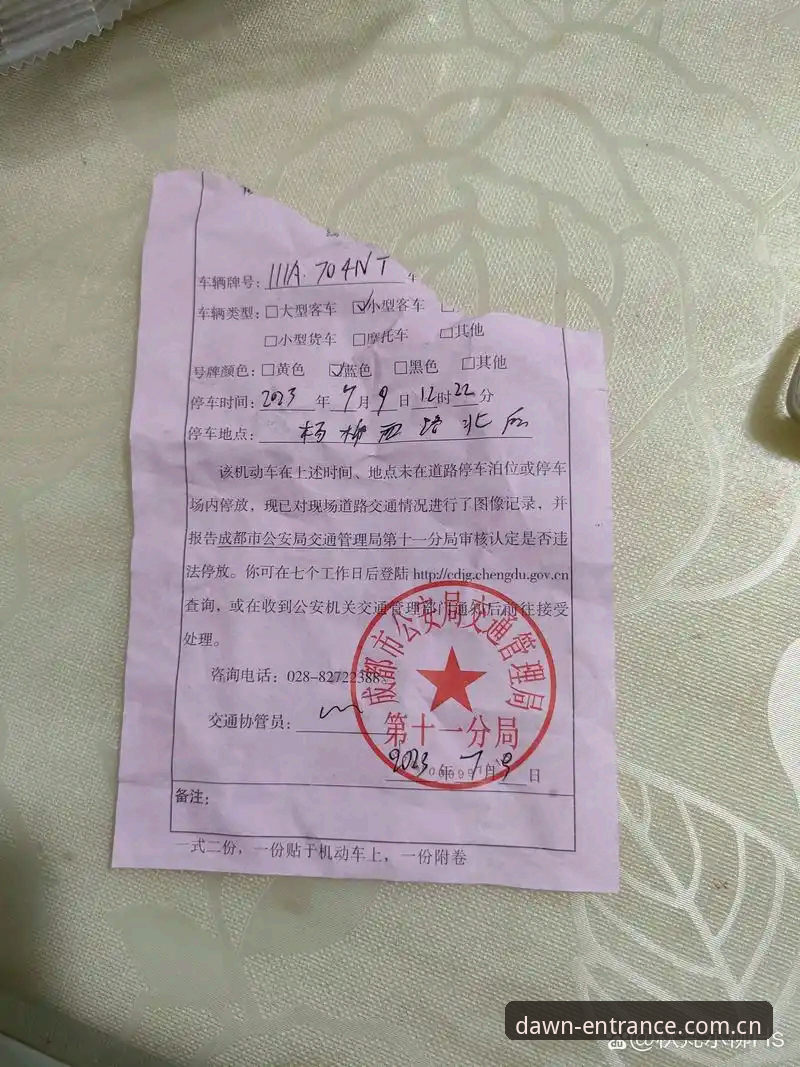 车辆牌号：111A·704NT 车
车辆类型：□大型客车 ☑小型客车 □
□小型货车 □摩托车 □其他
号牌颜色：□黄色 ☑蓝色 □黑色 □其他
停车时间：2023年7月9日12时22分
停车地点：杨柳西路北
该机动车在上述时间、地点未在道路停车泊位或停车
场内停放，现已对现场道路交通情况进行了图像记录，并
报告成都市公安局交通管理局第十一分局审核认定是否违
法停放。你可在七个工作日后登陆 http://cdjg.chengdu.gov.cn
查询，或在收到公安机关交通管理部门通知后前往接受
处理。
咨询电话：028-82722388
交通协管员：
成都市公安局交通管理局
第十一分局
2023年7月9日
备注：
一式二份，一份贴于机动车上，一份附卷
dawn-entrance.com.cn